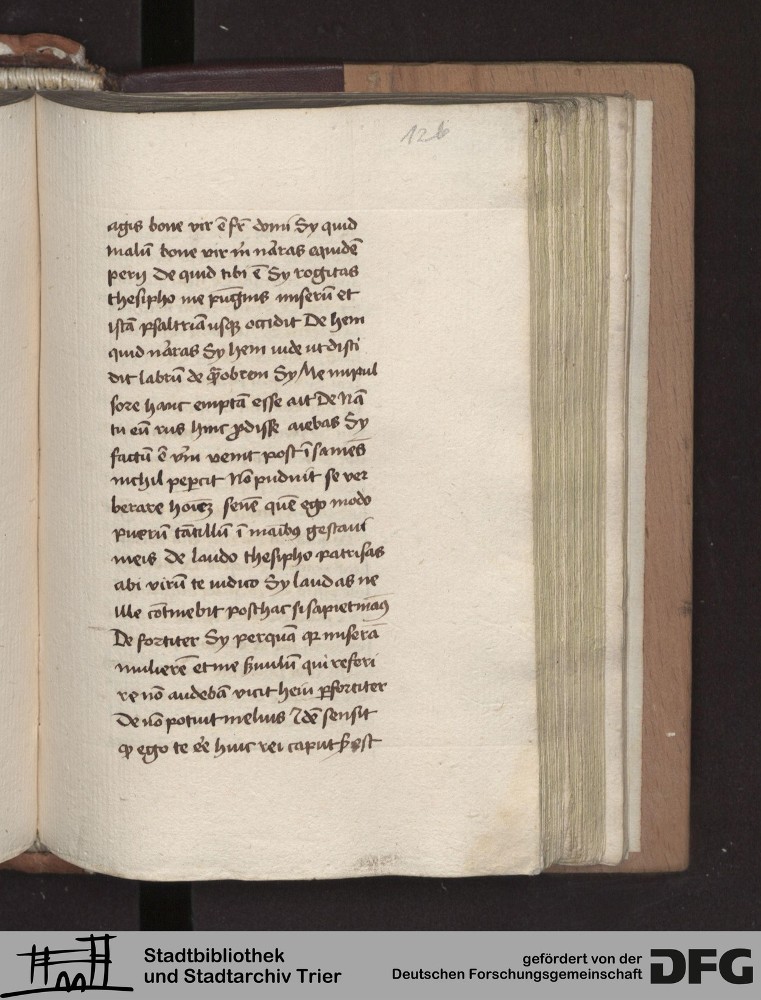 126
agis bone vir ē fr̄ domi Sy quid
malū bone vir m̄ narras equidē
perij De quid tibi ē Sy rogitas
thesipho me pugnis miserū et
istā psaltriā usq; occidit De hem
quid narras Sy hem vide ut disci
dit labrū de q̄obrem Sy Me impul
sore hanc emptā esse ait De Nā
tu eū rus hinc ꝓdisse aiebas Sy
factū ē vm̄ venit post īsaniēs
nichil peꝑcit Nō puduit se ver
berare hoiēʒ senē quē ego modo
puerū tātillū ī maibꝫ gestaui
meis De laudo thesipho patrisas
abi virū te iudico Sy laudas ne
ille cōtinebit posthac si sapiet man9
De fortiter Sy perquā qꝛ miserā
mulierē et me s̄vulū qui referi
re nō audebā vicit hem ꝑfortiter
De nō potuit melius Idē sensit
qđ ego te ēe huic rei caput s̄ est
Stadtbibliothek
und Stadtarchiv Trier
gefördert von der
Deutschen Forschungsgemeinschaft
DFG